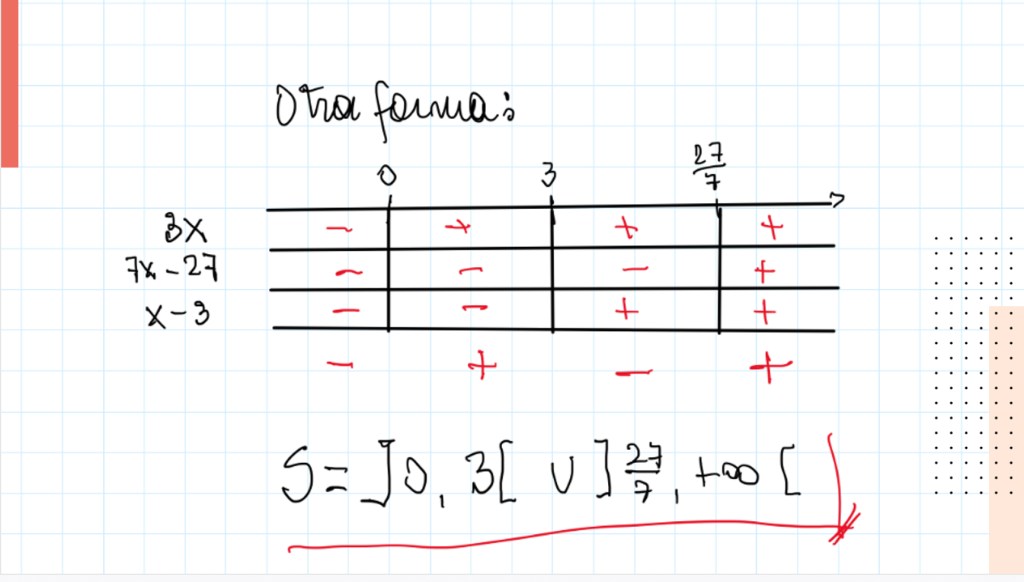 Otra forma:
0 3 27/7
3x - + + +
7x - 27 - - - +
x - 3 - - + +
- + - +
S = ]0, 3[ ∪ ]27/7, +∞[